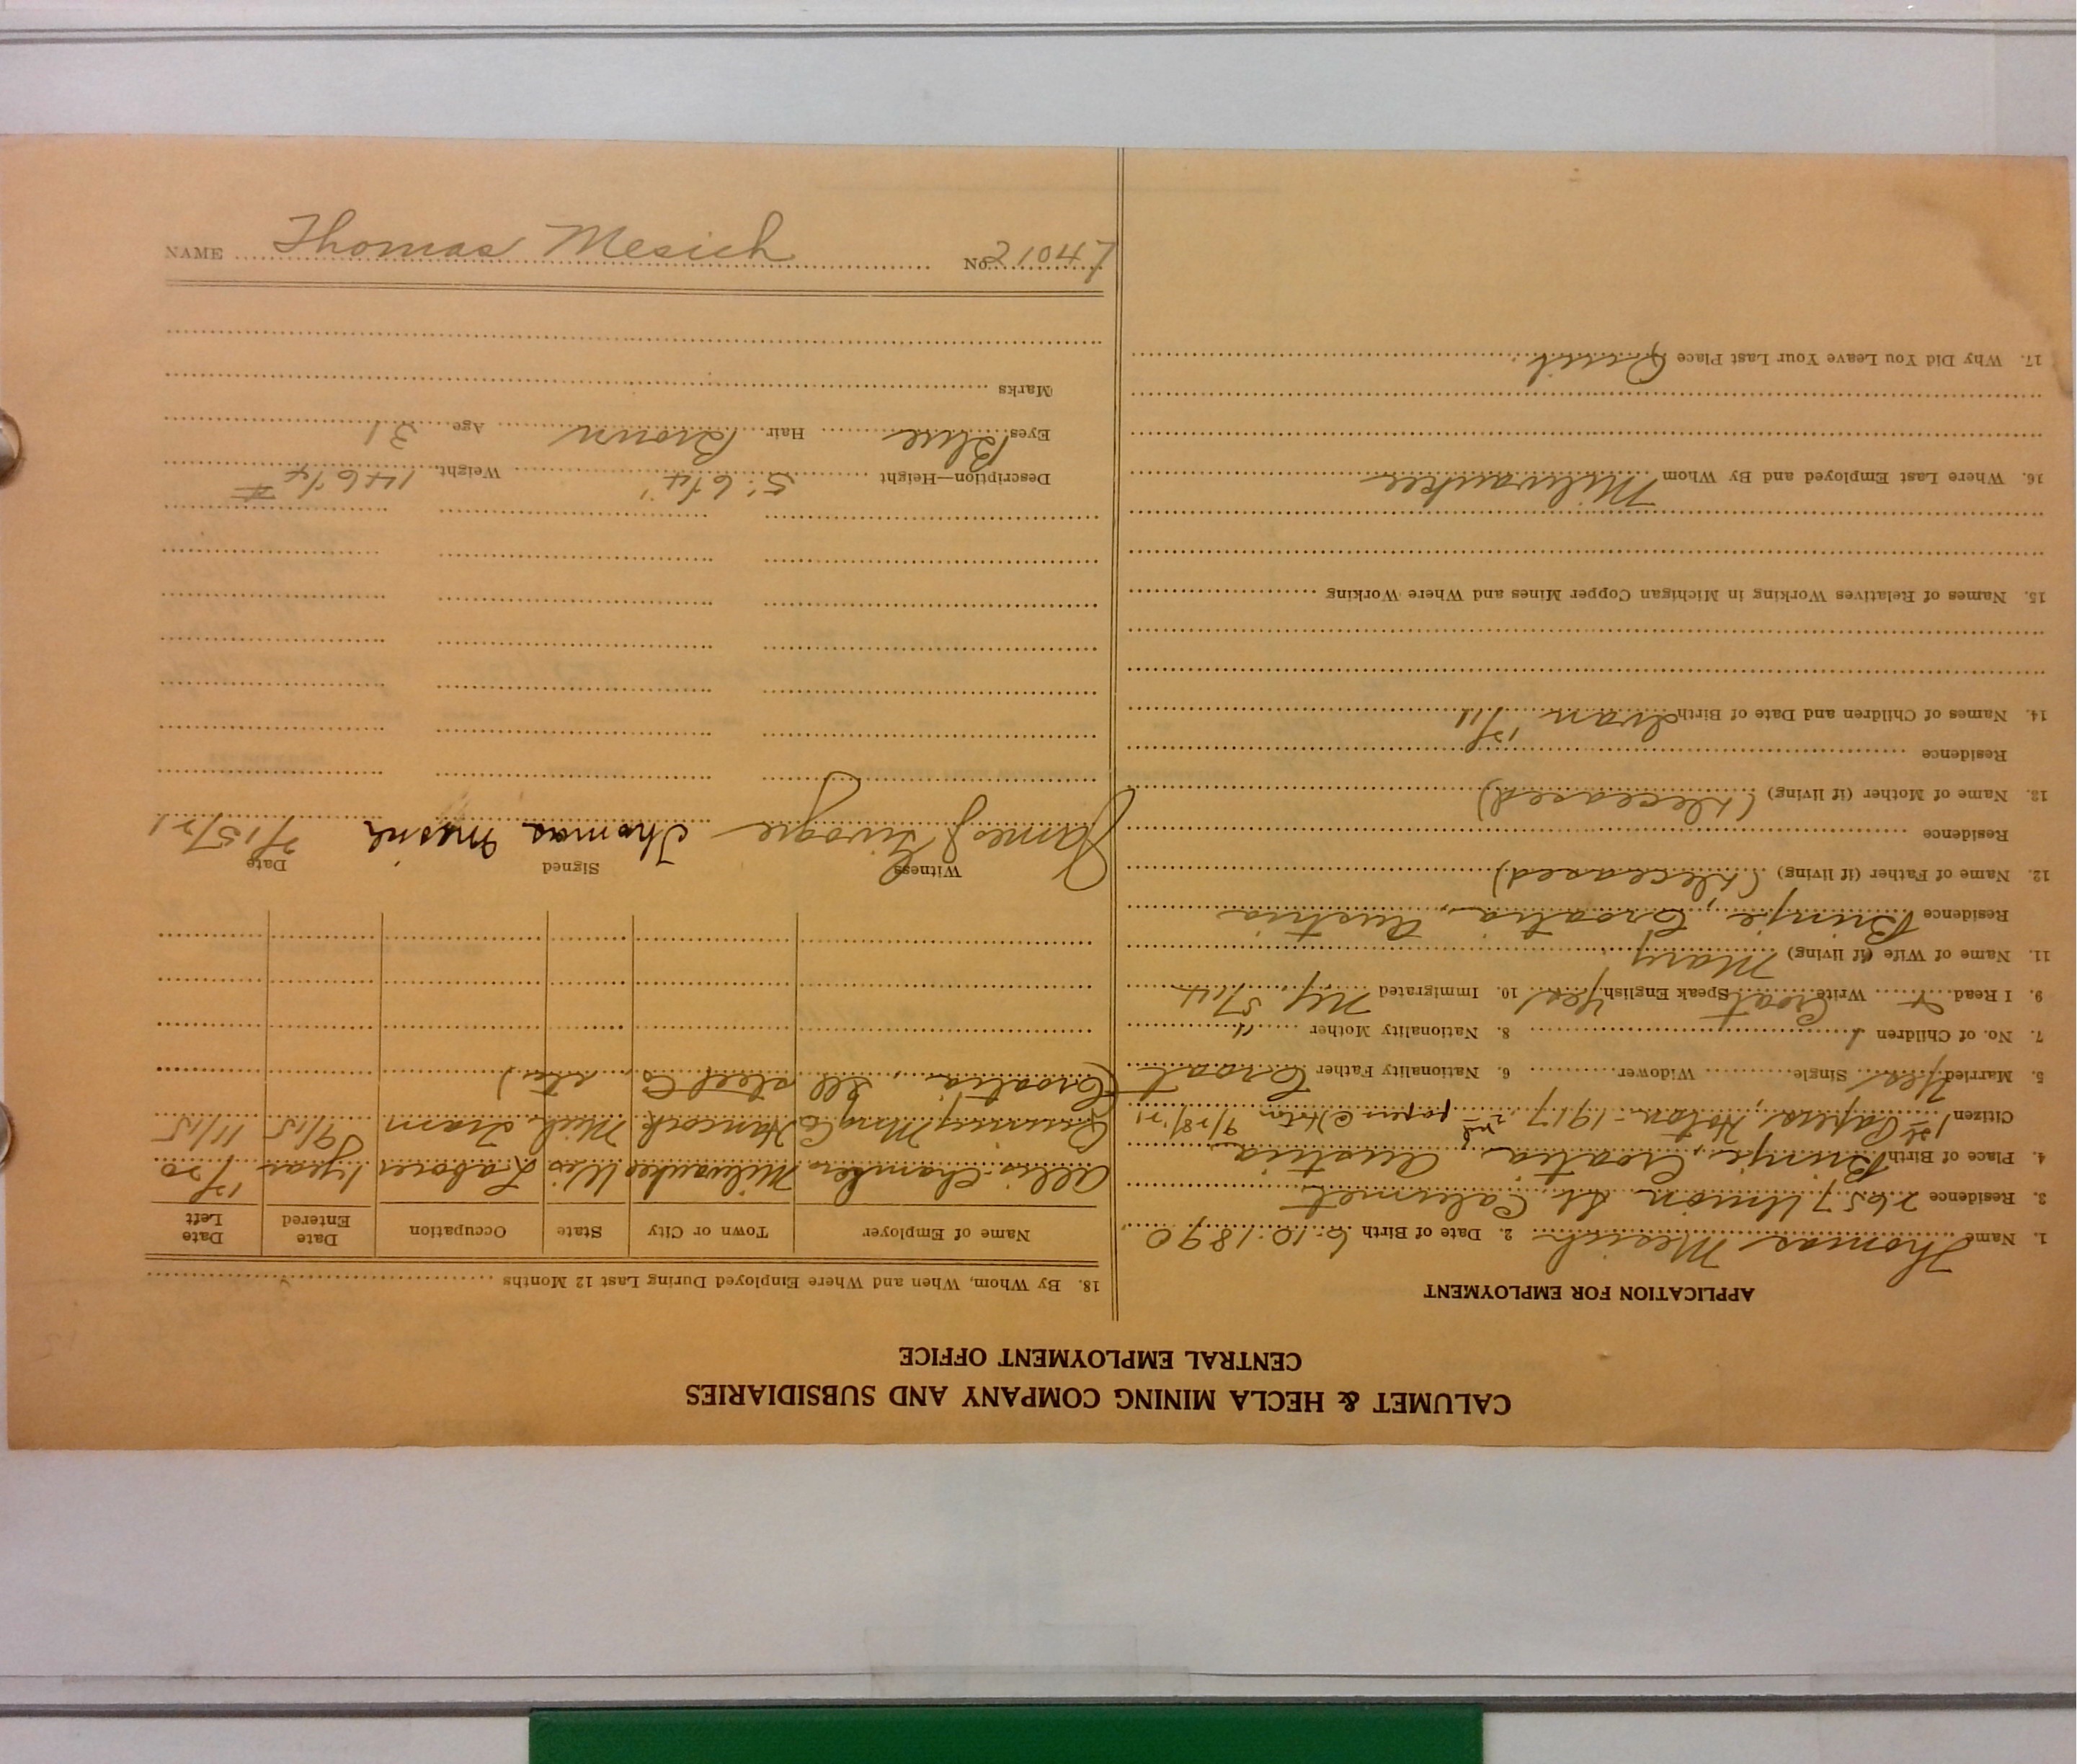 CALUMET & HECLA MINING COMPANY AND SUBSIDIARIES
CENTRAL EMPLOYMENT OFFICE
APPLICATION FOR EMPLOYMENT
1. Name Thomas Mesich 2. Date of Birth 6-10-1890
3. Residence 2657 Union St. Calumet
4. Place of Birth Brinje, Croatia, Austria
Citizen 1st Papers Hoton-1917 2nd papers @ Hoton 9/28/21
5. Married Yes Single Widower 6. Nationality Father Croat
7. No. of Children 1 8. Nationality Mother "
9. I Read Write Croat Speak English Yes 10. Immigrated Ny 5/14
11. Name of Wife (if living) Mary
Residence Brinje, Croatia, Austria
12. Name of Father (if living) (deceased)
Residence
13. Name of Mother (if living) (deceased)
Residence
14. Names of Children and Date of Birth Ivan 12/11
15. Names of Relatives Working in Michigan Copper Mines and Where Working
16. Where Last Employed and By Whom Milwaukee
17. Why Did You Leave Your Last Place Quit
18. By Whom, When and Where Employed During Last 12 Months
Name of Employer Town or City State Occupation Date Entered Date Left
Allis-Chambers Milwaukee Wis Laborer 1 year 12/20
Quincy Mng Co Hancock Mich Tram 9/15 11/15
(Croatia, Ill steel Co
Witness Signed Date
James J Thomas Mesich 7/15/21
Description—Height 5' 6 1/4" Weight 146 1/4 #
Eyes Blue Hair Brown Age 31
Marks
NAME Thomas Mesich No. 21047